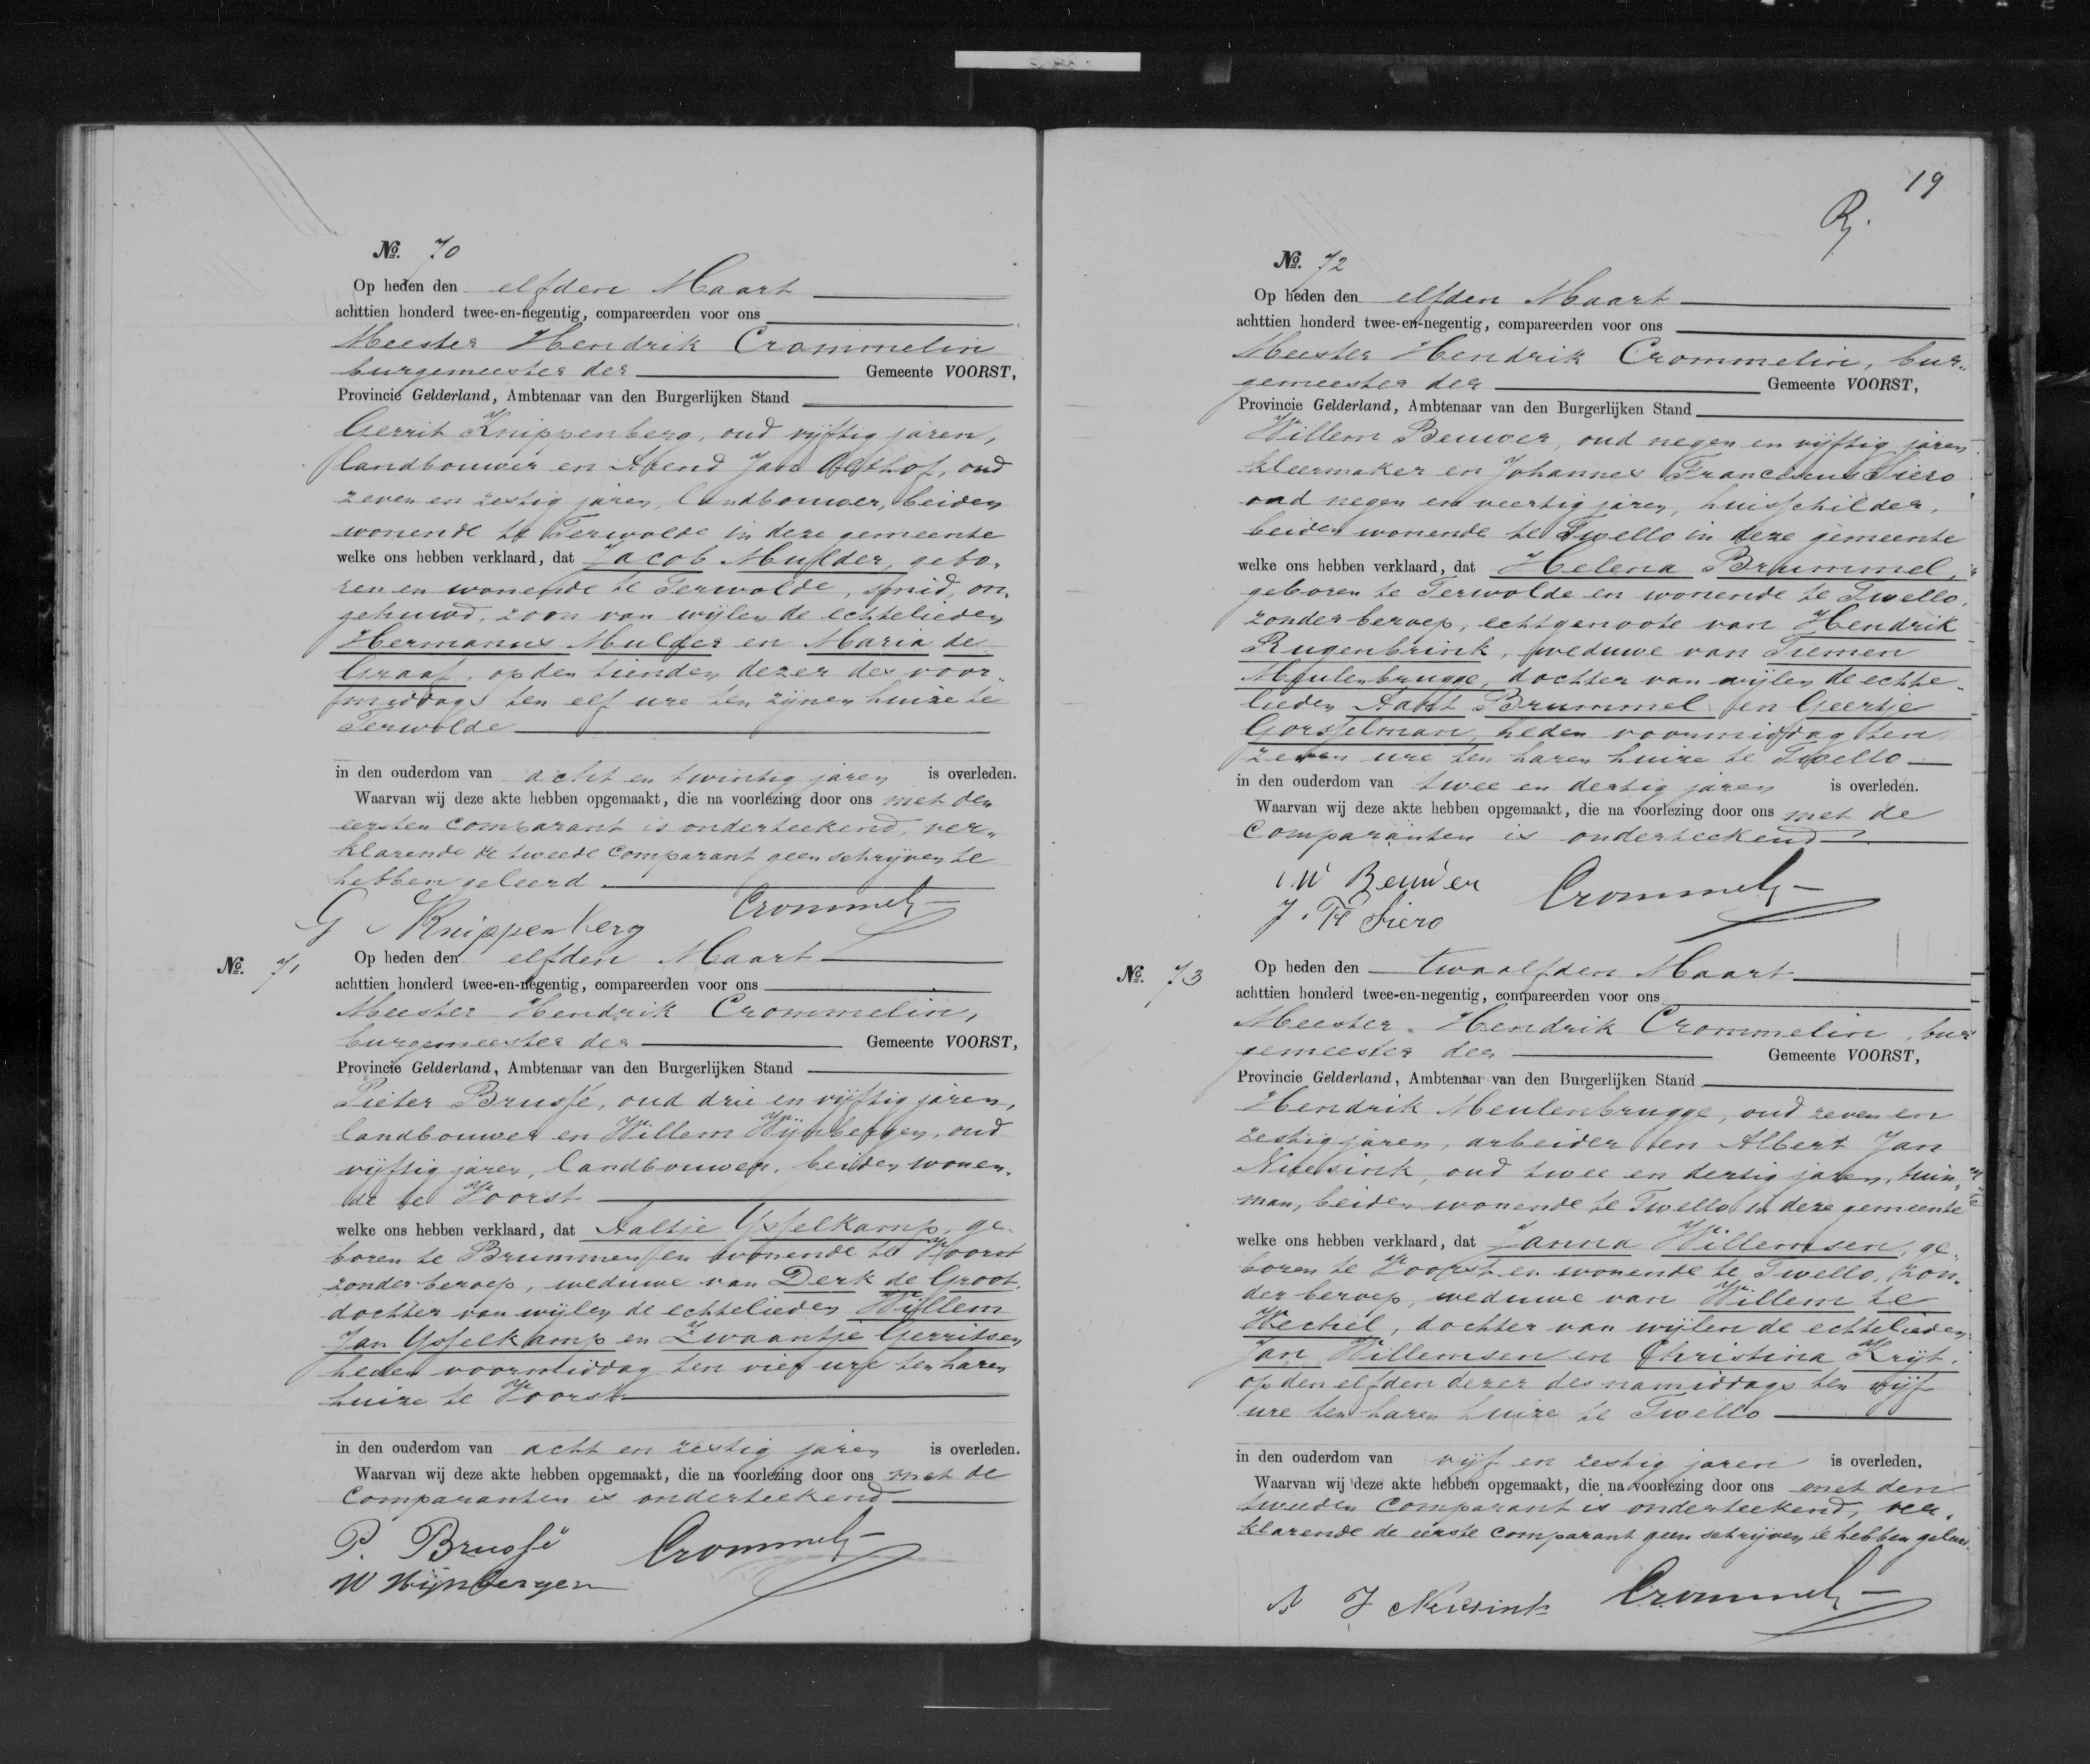 No. 70
Op heden den elfden Maart
achttien honderd twee-en-negentig, compareerden voor ons
Meester Hendrik Crommelin
burgemeester der Gemeente VOORST,
Provincie Gelderland, Ambtenaar van den Burgerlijken Stand
Gerrit Knippenberg, oud vijftig jaren,
landbouwer en Arend Jan Olthof, oud
zeven en zestig jaren, landbouwer, beiden
wonende te Terwolde in deze gemeente
welke ons hebben verklaard, dat Jacob Mulder, gebo„
ren en wonende te Terwolde, smid, on„
gehuwd, zoon van wijlen de echtelieden
Hermanus Mulder en Maria de
Graaf, op den tienden dezer des voor„
middags ten elf ure ten zijnen huize te
Terwolde
in den ouderdom van acht en twintig jaren is overleden.
Waarvan wij deze akte hebben opgemaakt, die na voorlezing door ons met den
eersten comparant is onderteekend, ver„
klarende de tweede comparant geen schrijven te
hebben geleerd
G Knippenberg Crommelin
No. 71
Op heden den elfden Maart
achttien honderd twee-en-negentig, compareerden voor ons
Meester Hendrik Crommelin,
burgemeester der Gemeente VOORST,
Provincie Gelderland, Ambtenaar van den Burgerlijken Stand
Pieter Brussé, oud drie en vijftig jaren,
landbouwer en Willem Wijnbergen, oud
vijftig jaren, landbouwer, beiden wonen„
de te Voorst
welke ons hebben verklaard, dat Aaltje Ysselkamp, ge„
boren te Brummen en wonende te Voorst
zonder beroep, weduwe van Derk de Groot,
dochter van wijlen de echtelieden Willem
Jan Ysselkamp en Zwaantje Gerritsen
heden voormiddag ten vier ure ten haren
huize te Voorst
in den ouderdom van acht en zestig jaren is overleden.
Waarvan wij deze akte hebben opgemaakt, die na voorlezing door ons met de
comparanten is onderteekend
P. Brussé Crommelin
W Wijnbergen
19
No. 72
Op heden den elfden Maart
achttien honderd twee-en-negentig, compareerden voor ons
Meester Hendrik Crommelin, bur„
gemeester der Gemeente VOORST,
Provincie Gelderland, Ambtenaar van den Burgerlijken Stand
Willem Beuwer, oud negen en vijftig jaren
kleermaker en Johannes Franciscus Siero
oud negen en veertig jaren, huisschilder,
beiden wonende te Twello in deze gemeente
welke ons hebben verklaard, dat Helena Brummel,
geboren te Terwolde en wonende te Twello,
zonder beroep, echtgenoote van Hendrik
Rugenbrink, weduwe van Tiemen
Meulenbrugge, dochter van wijlen de echte„
lieden Aalt Brummel en Geertje
Gorsselman, heden voormiddag ten
zeven ure ten haren huize te Twello
in den ouderdom van twee en dertig jaren is overleden.
Waarvan wij deze akte hebben opgemaakt, die na voorlezing door ons met de
comparanten is onderteekend
W Beuwer Crommelin
J. Fr Siero
No. 73
Op heden den twaalfden Maart
achttien honderd twee-en-negentig, compareerden voor ons
Meester Hendrik Crommelin, bur„
gemeester der Gemeente VOORST,
Provincie Gelderland, Ambtenaar van den Burgerlijken Stand
Hendrik Meulenbrugge, oud zeven en
zestig jaren, arbeider en Albert Jan
oud twee en dertig jaren, tuin„
man, beiden wonende te Twello in deze gemeente
welke ons hebben verklaard, dat Janna Willemsen, ge„
boren te Voorst en wonende te Twello, zon„
der beroep, weduwe van Willem te
Wechel, dochter van wijlen de echtelieden
Jan Willemsen en Christina Krijt,
op den elfden dezer des namiddags ten vijf
ure ten haren huize te Twello
in den ouderdom van vijf en zestig jaren is overleden.
Waarvan wij deze akte hebben opgemaakt, die na voorlezing door ons met den
tweeden comparant is onderteekend, ver„
klarende de eerste comparant geen schrijven te hebben geleerd.
A J Crommelin